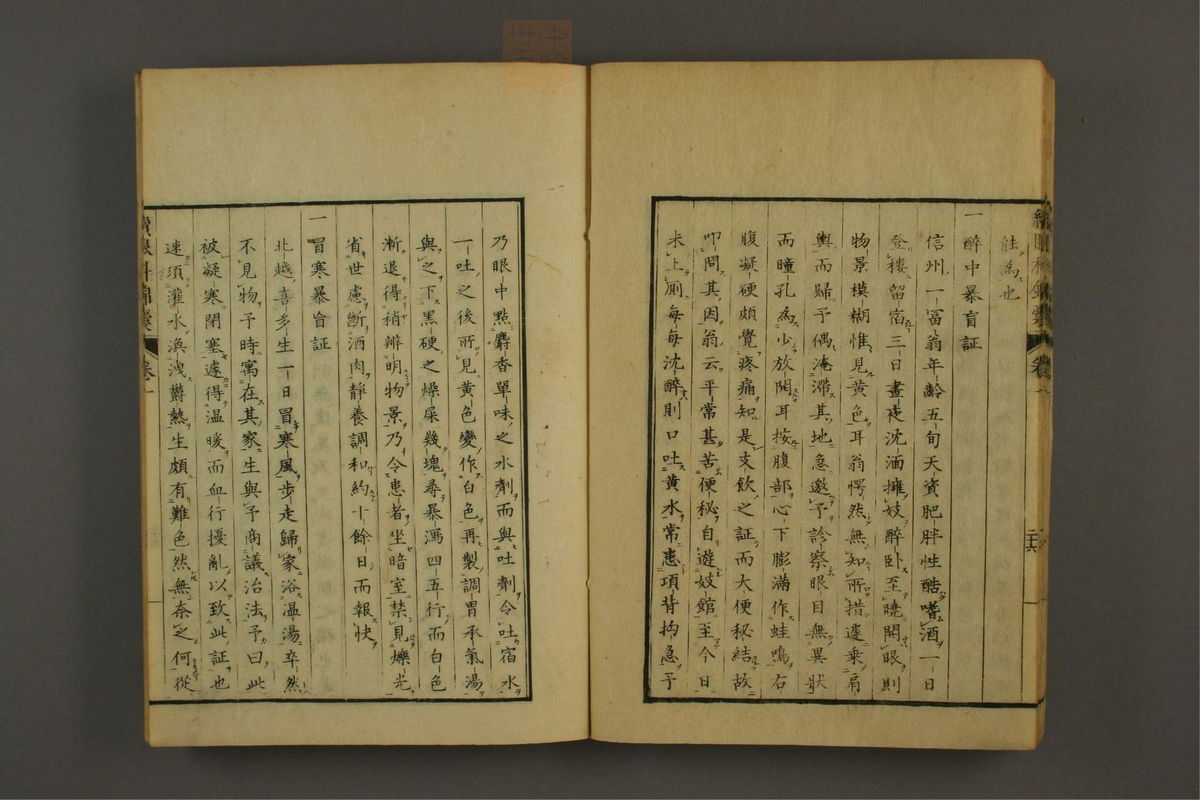 能為也
一 醉中暴盲証
信州一富翁年齡五旬天資肥胖性酷嗜酒一日
登樓留宿三日晝夜沈湎擁妓醉臥至曉開眼則
物景模糊惟見黃色耳翁愕然無知所措遽乘肩
輿而歸予偶淹滯其地急邀予診察眼目無異狀
而瞳孔為少放開耳按腹部心下膨滿作蛙鳴右
腹凝硬頗覺疼痛知是支飲之証而大便秘結故
叩問其因翁云平常甚苦便秘自遊妓館至今日
未上廁每每沈醉則口吐黃水常患項背拘急予
乃眼中點麝香單味之水劑而與吐劑令吐宿水
一吐之後所見黃色變作白色再製調胃承氣湯
與之下黑硬之燥屎幾塊尋暴瀉四五行而白色
漸退得稍辨明物景乃令患者坐暗室禁見爍光
省世慮斷酒肉靜養調和約十餘日而報快
一 冒寒暴盲証
北越喜多生一日冒寒風步走歸家浴温湯卒然
不見物予時寓在其家生與予商議治法予曰此
被凝寒閉塞遽得温暖而血行擾亂以致此証也
速須灌水渙洩欝熱生頗有難色然無奈之何從
續眼科錦囊 卷一